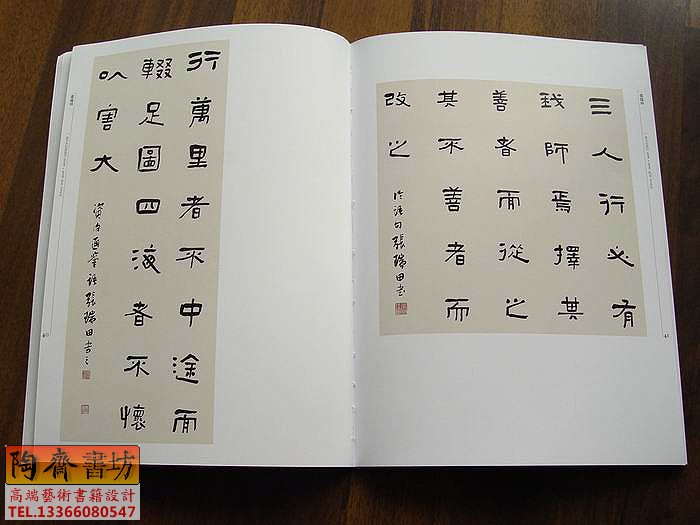 行萬里者不中途而
輟足圖四海者不懷
以害大
資治通鑒語張瑞田書之
三人行必有
我師焉擇其
善者而從之
其不善者而
改之
論語句張瑞田書
陶齋書坊
高端藝術書籍設計
TEL.13366080547